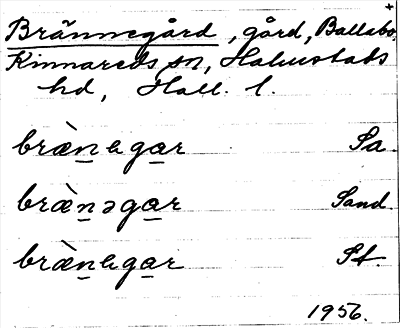 +
Brännegård, gård, Ballabo,
Kinnareds sn, Halmstads
hd, Hall. l.
bræ̀negar Sa.
bræ̀nəgar Sand.
bræ̀negar St.
1956.